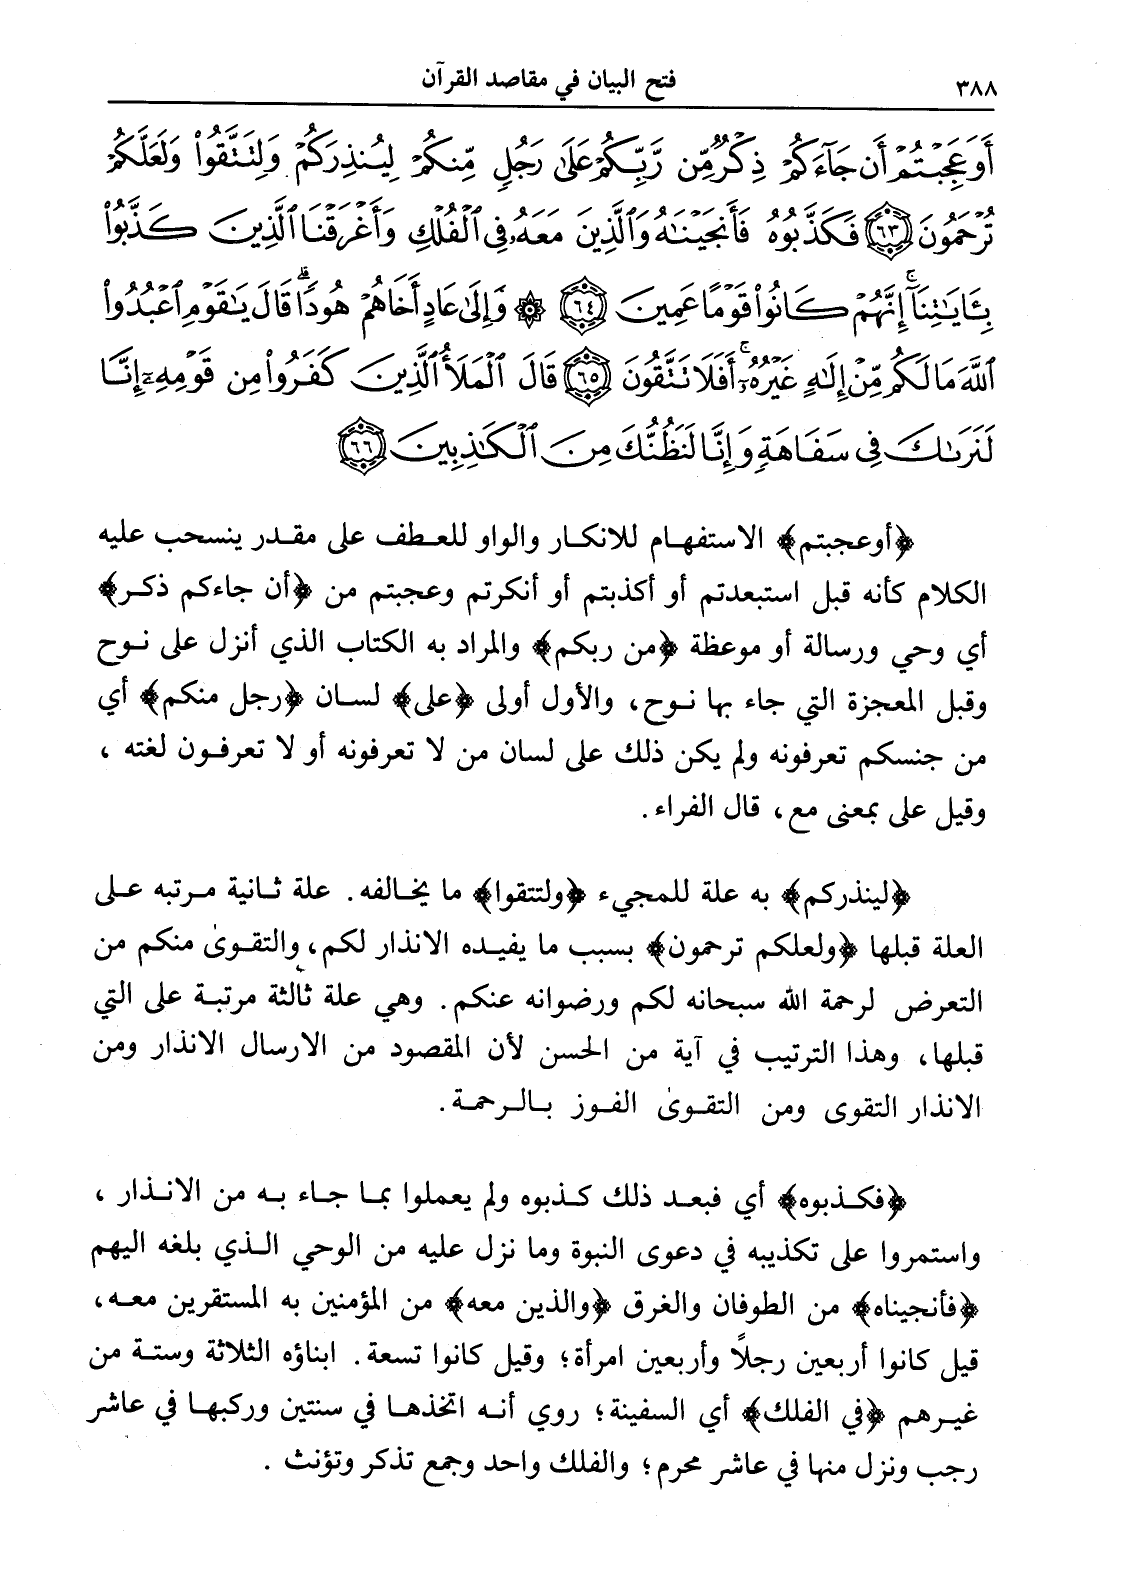 ٣٨٨
فتح البيان في مقاصد القرآن
أَوَعَجِبْتُمْ أَن جَآءَكُمْ ذِكْرٌ مِّن رَّبِّكُمْ عَلَىٰ رَجُلٍ مِّنكُمْ لِيُنذِرَكُمْ وَلِتَتَّقُوا۟ وَلَعَلَّكُمْ
تُرْحَمُونَ ﴿٦٣﴾ فَكَذَّبُوهُ فَأَنجَيْنَـٰهُ وَٱلَّذِينَ مَعَهُۥ فِى ٱلْفُلْكِ وَأَغْرَقْنَا ٱلَّذِينَ كَذَّبُوا۟
بِـَٔايَـٰتِنَآ ۚ إِنَّهُمْ كَانُوا۟ قَوْمًا عَمِينَ ﴿٦٤﴾ ۞ وَإِلَىٰ عَادٍ أَخَاهُمْ هُودًا ۗ قَالَ يَـٰقَوْمِ ٱعْبُدُوا۟
ٱللَّهَ مَا لَكُم مِّنْ إِلَـٰهٍ غَيْرُهُۥٓ ۚ أَفَلَا تَتَّقُونَ ﴿٦٥﴾ قَالَ ٱلْمَلَأُ ٱلَّذِينَ كَفَرُوا۟ مِن قَوْمِهِۦٓ إِنَّا
لَنَرَىٰكَ فِى سَفَاهَةٍ وَإِنَّا لَنَظُنُّكَ مِنَ ٱلْكَـٰذِبِينَ ﴿٦٦﴾
﴿أوعجبتم﴾ الاستفهام للانكار والواو للعطف على مقدر ينسحب عليه
الكلام كأنه قبل استبعدتم أو أكذبتم أو أنكرتم وعجبتم من ﴿أن جاءكم ذكر﴾
أي وحي ورسالة أو موعظة ﴿من ربكم﴾ والمراد به الكتاب الذي أنزل على نوح
وقبل المعجزة التي جاء بها نوح، والأول أولى ﴿على﴾ لسان ﴿رجل منكم﴾ أي
من جنسكم تعرفونه ولم يكن ذلك على لسان من لا تعرفونه أو لا تعرفون لغته ،
وقيل على بمعنى مع، قال الفراء.
﴿لينذركم﴾ به علة للمجيء ﴿ولتتقوا﴾ ما يخالفه. علة ثانية مرتبه على
العلة قبلها ﴿ولعلكم ترحمون﴾ بسبب ما يفيده الانذار لكم، والتقوىٰ منكم من
التعرض لرحمة الله سبحانه لكم ورضوانه عنكم. وهي علة ثالثة مرتبة على التي
قبلها، وهذا الترتيب في آية من الحسن لأن المقصود من الارسال الانذار ومن
الانذار التقوى ومن التقوىٰ الفوز بالرحمة.
﴿فكذبوه﴾ أي فبعد ذلك كذبوه ولم يعملوا بما جاء به من الانذار ،
واستمروا على تكذيبه في دعوى النبوة وما نزل عليه من الوحي الذي بلغه اليهم
﴿فأنجيناه﴾ من الطوفان والغرق ﴿والذين معه﴾ من المؤمنين به المستقرين معه،
قيل كانوا أربعين رجلاً وأربعين امرأة؛ وقيل كانوا تسعة. ابناؤه الثلاثة وستة من
غيرهم ﴿في الفلك﴾ أي السفينة؛ روي أنه اتخذها في سنتين وركبها في عاشر
رجب ونزل منها في عاشر محرم؛ والفلك واحد وجمع تذكر وتؤنث .